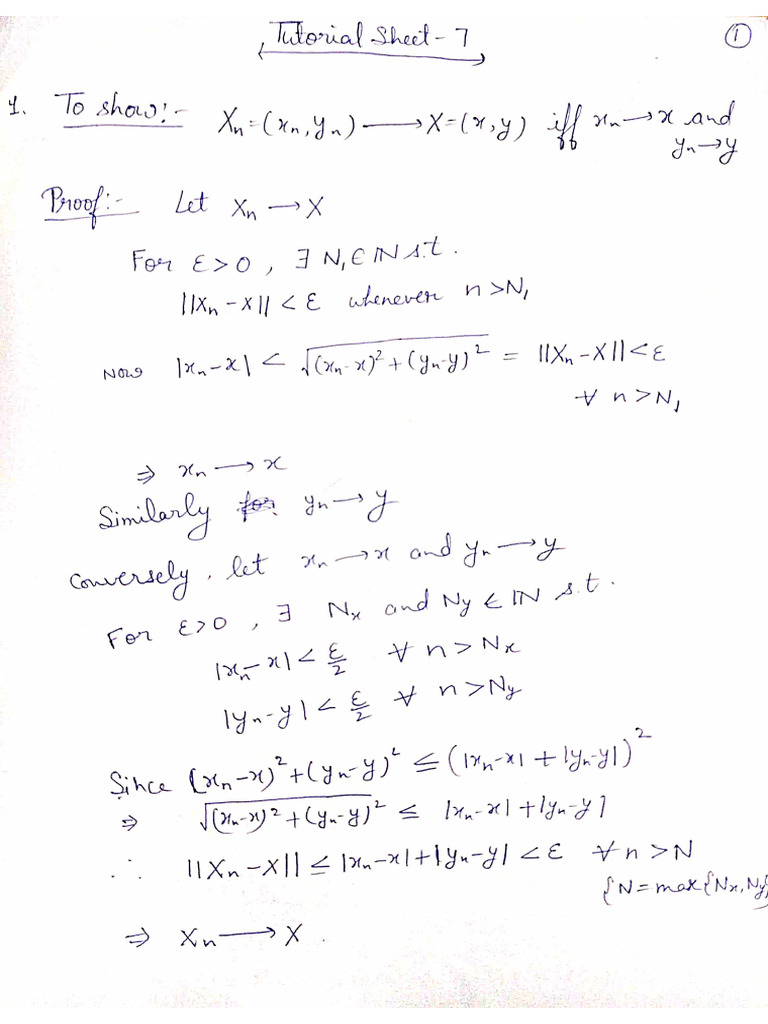 Tutorial Sheet - 7
①
1. To show:- Xₙ=(xₙ,yₙ) ⟶ X=(x,y) iff xₙ→x and
yₙ→y
Proof:- Let Xₙ → X
For ε>0, ∃ N₁∈ℕ s.t.
||Xₙ-X||<ε whenever n>N₁
Now |xₙ-x| < √((xₙ-x)²+(yₙ-y)²) = ||Xₙ-X||<ε
∀ n>N₁
⇒ xₙ ⟶ x
Similarly yₙ→y
Conversely, let xₙ→x and yₙ→y
For ε>0, ∃ Nₓ and Ny ∈ ℕ s.t.
|xₙ-x|<ε/2 ∀ n>Nₓ
|yₙ-y|<ε/2 ∀ n>Ny
Since (xₙ-x)²+(yₙ-y)² ≤ (|xₙ-x|+|yₙ-y|)²
⇒ √((xₙ-x)²+(yₙ-y)²) ≤ |xₙ-x|+|yₙ-y|
∴ ||Xₙ-X|| ≤ |xₙ-x|+|yₙ-y|<ε ∀ n>N
{N=max{Nₓ,Ny}
⇒ Xₙ ⟶ X.